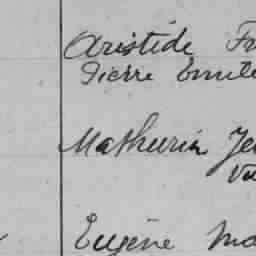 Aristide Fr
Pierre Emile
Mathurin Je
Vi
Eugène Ma